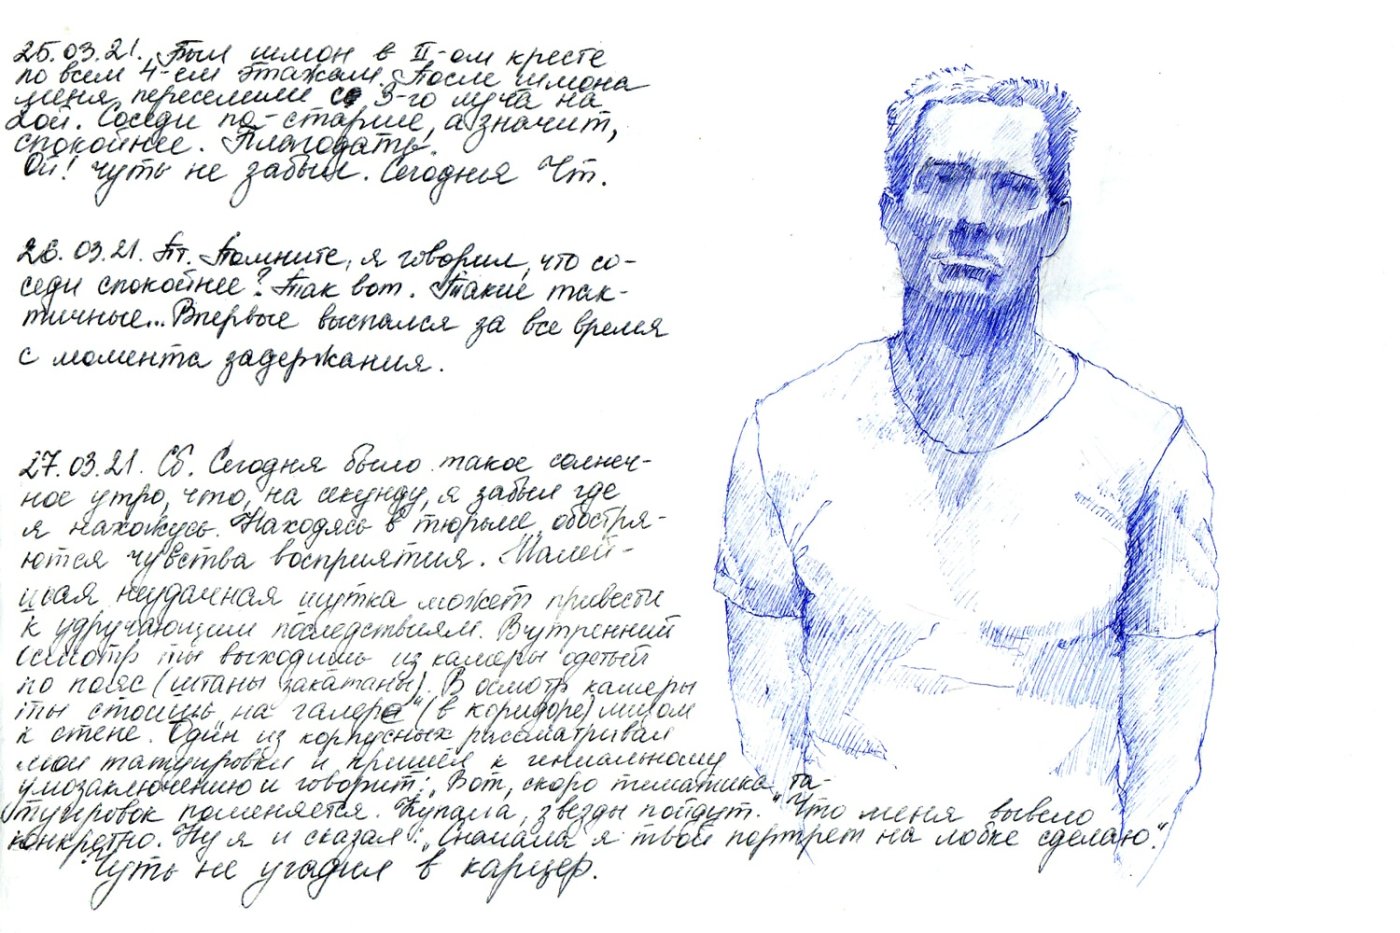 25.03.21. Был шмон в II-ом кресте
по всем 4-ем этажам. После шмона
меня переселили со 3-го луча на
2ой. Соседи по-старше, а значит,
спокойнее. Благодать.
Ой! Чуть не забыл. Сегодня Чт.
26.03.21. Пт. Помните, я говорил, что со-
седи спокойнее? Так вот. Такие так-
тичные... Впервые выспался за все время
с момента задержания.
27.03.21. Сб. Сегодня было такое солнеч-
ное утро, что, на секунду, я забыл где
я нахожусь. Находясь в тюрьме, обостря-
ются чувства восприятия. Малей-
шая неудачная шутка может привести
к удручающим последствиям. Внутренний
осмотр ты выходишь из камеры одетый
по пояс (штаны закатаны). В осмотр камеры
ты стоишь на "галере" (в коридоре) лицом
к стене. Один из корпусных рассматривал
мои татуировки и пришёл к гениальному
умозаключению и говорит: "Вот, скоро тематика та-
туировок поменяется. Купала, звезды пойдут." Что меня вывело
конкретно. Ну я и сказал: "Сначала я твой портрет на лобке сделаю".
Чуть не угодил в карцер.